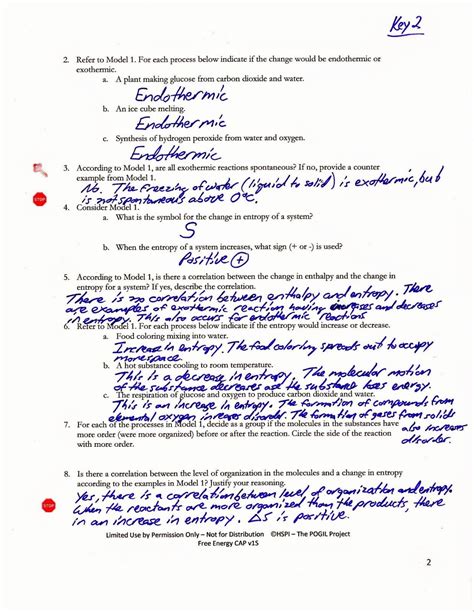 Key 2
2. Refer to Model 1. For each process below indicate if the change would be endothermic or
exothermic.
a. A plant making glucose from carbon dioxide and water.
Endothermic
b. An ice cube melting.
Endothermic
c. Synthesis of hydrogen peroxide from water and oxygen.
Endothermic
3. According to Model 1, are all exothermic reactions spontaneous? If no, provide a counter
example from Model 1.
No. The freezing of water (liquid to solid) is exothermic, but
STOP
is not spontaneous above 0°C.
4. Consider Model 1.
a. What is the symbol for the change in entropy of a system?
S
b. When the entropy of a system increases, what sign (+ or -) is used?
Positive (+)
5. According to Model 1, is there a correlation between the change in enthalpy and the change in
entropy for a system? If yes, describe the correlation.
There is no correlation between enthalpy and entropy. There
are examples of exothermic reaction having increases and decreases
in entropy. This also occurs for endothermic reactions
6. Refer to Model 1. For each process below indicate if the entropy would increase or decrease.
a. Food coloring mixing into water.
Increase in entropy. The food coloring spreads out to occupy
more space.
b. A hot substance cooling to room temperature.
This is a decrease in entropy. The molecular motion
of the substance decreases as the substance loses energy.
c. The respiration of glucose and oxygen to produce carbon dioxide and water.
This is an increase in entropy. The formation of compounds from
elements increases disorder. The formation of gases from solids
also increases
disorder.
7. For each of the processes in Model 1, decide as a group if the molecules in the substances have
more order (were more organized) before or after the reaction. Circle the side of the reaction
with more order.
8. Is there a correlation between the level of organization in the molecules and a change in entropy
according to the examples in Model 1? Justify your reasoning.
Yes, there is a correlation between level of organization and entropy.
STOP
When the reactants are more organized than the products, there
in an increase in entropy. ΔS is positive.
Limited Use by Permission Only – Not for Distribution ©HSPI – The POGIL Project
Free Energy CAP v1S
2